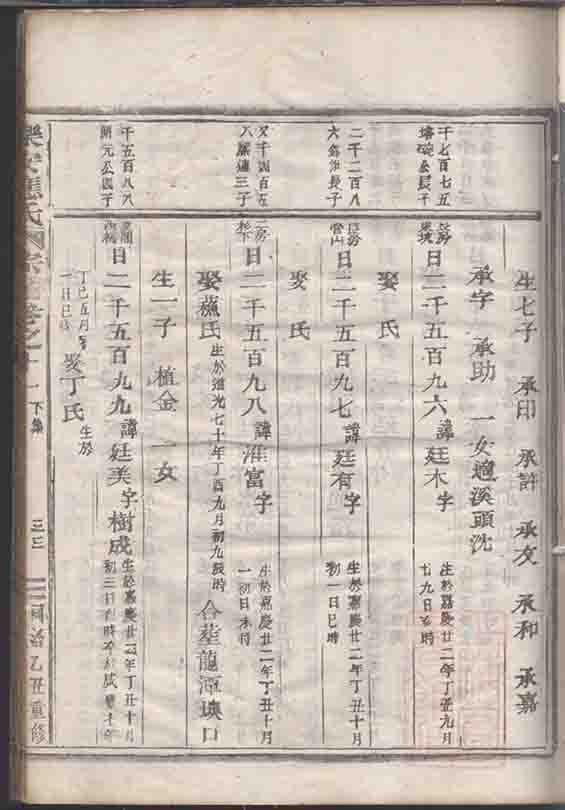 生七子 承印 承許 承友 承和 承嘉
承字 承助 一女適溪頭沈
千七百七五
公長子
日二千五百九六諱廷木字
生於嘉慶廿二年丁丑九月
九日 時
娶 氏
二千二百八
六 長子
日二千五百九七諱廷有字
生於嘉慶廿二年丁丑十月
初一日巳時
娶 氏
又千四百五
八 三子
日二千五百九八諱淮富字
生於嘉慶廿二年丁丑十月
一初日未時
娶蕉氏
生於道光 十年丁酉九月初九辰時
合葬龍潭坳口
生一子 植金 一女
千五百八八
開元公四子
日二千五百九九諱廷美字樹成
生於嘉慶廿二年丁丑十月
初三日 時
丁巳五月
一日巳
娶丁氏
生於
樂安 氏 宗 卷之十一
下集
三三
同治乙丑重修